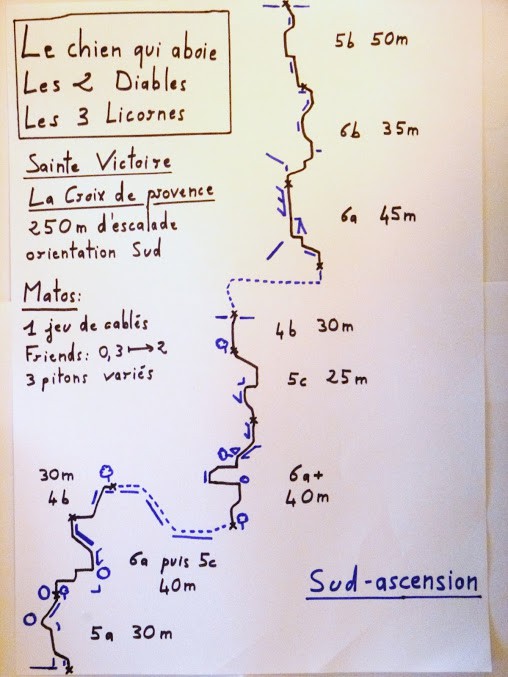 Le chien qui aboie
Les 2 Diables
Les 3 Licornes
Sainte Victoire
La Croix de provence
250m d'escalade
orientation Sud
Matos:
1 jeu de cablés
Friends: 0,3 ↦ 2
3 pitons variés
5b 50m
6b 35m
6a 45m
4b 30m
5c 25m
6a+
40m
30m
4b
6a puis 5c
40m
5a 30m
Sud-ascension